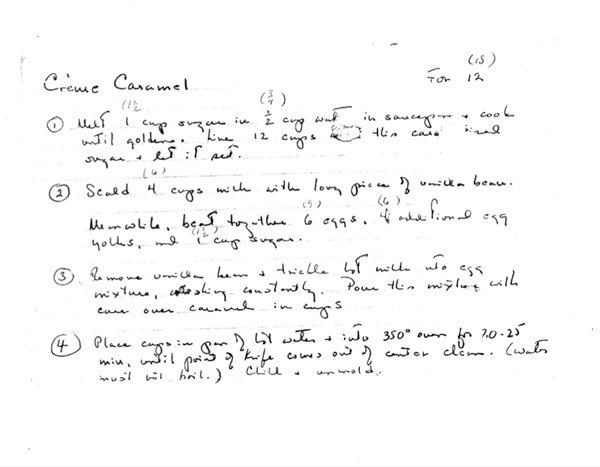 (18)
Crème Caramel For 12
(1½ (¾)
① Melt 1 cup sugar in ½ cup wat in saucepan + cook
until golden. Line 12 cups this cara ized
sugar + let it set.
(6)
② Scald 4 cups milk with long piece of vanilla bean.
(9) (6)
Meanwhile, beat together 6 eggs, 4 additional egg
(1½)
yolks, and 1 cup sugar.
③ Remove vanilla bean + trickle hot milk into egg
mixture, whisking constantly. Pour this mixture with
care over caramel in cups
④ Place cups in pan of hot water + into 350° oven for 20-25
min, until point of knife comes out of center clean. (Water
must not boil.) Chill + unmold.